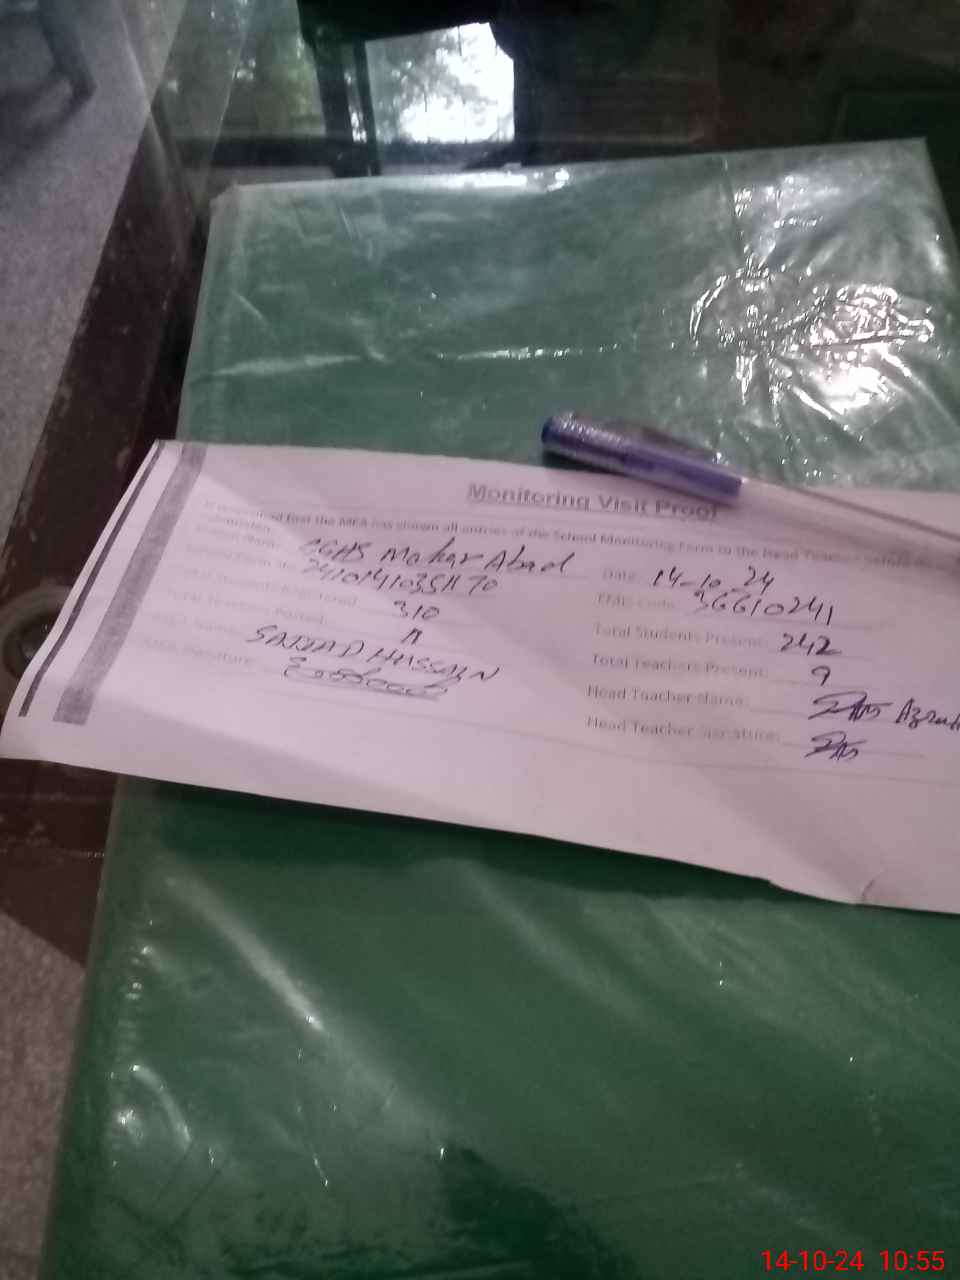 Monitoring Visit Proof
that the MEA has shown all entries of the School Monitoring Form to the Head Teacher before
submission.
School Name: GGHS Mohar Abad
Date: 14-10-24
School Form
EMIS Code: 36610241
Total Students Registered: 310
Total Students Present: 242
Total Teachers Posted:
Total Teachers Present: 9
MEA Name: SAJJAD HUSSAIN
Head Teacher Name:
MEA Signature:
Head Teacher Signature:
14-10-24 10:55